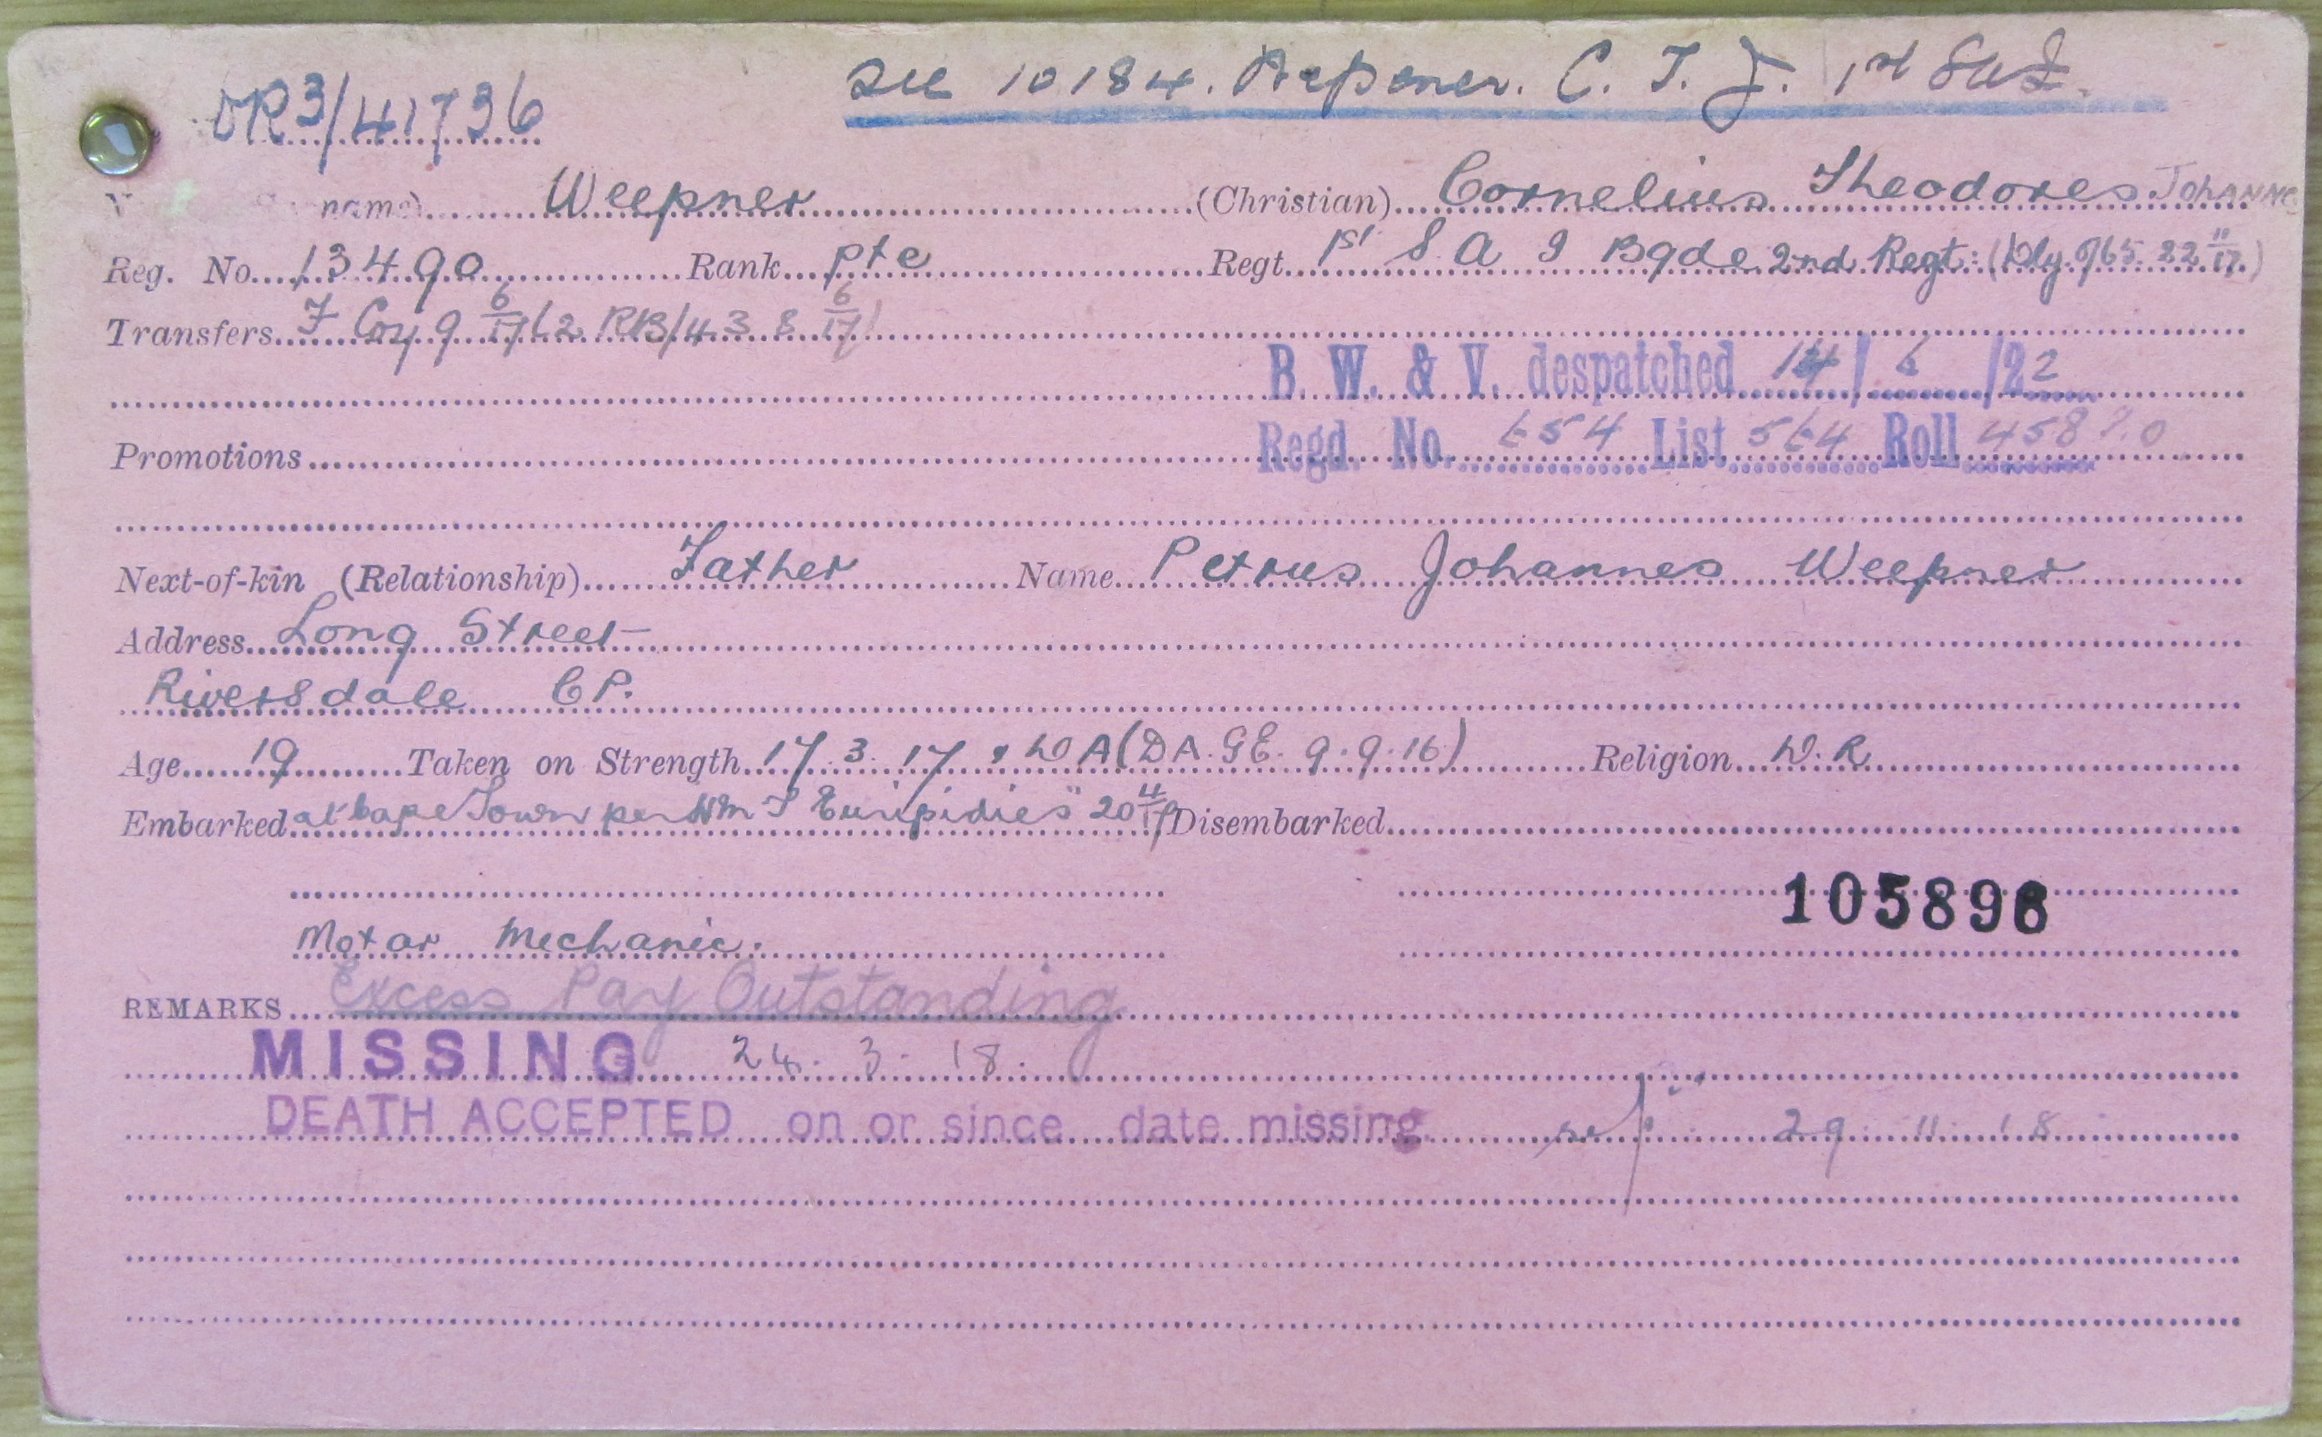 DR3/41736
See 10184. Wepener. C. T. J. 1st SAI.
name) Weepner (Christian) Cornelius Theodores JOHANNE
Reg. No. 13490 Rank pte Regt. 1st S A I Bgde 2nd Regt: (Dly 965 22 11/17)
Transfers F Coy 9 6/17 (2 RB/43 8 6/17)
B. W. & V. despatched 14/6/22
Promotions
Regd. No. 654 List 564 Roll 458
Next-of-kin (Relationship) Father Name Petrus Johannes Weepner
Address Long Street
Riversdale C P.
Age 19 Taken on Strength 17.3.17 (D A. G E. 9.9.16) Religion D. R
Embarked at Cape Town per HMT Euripidies" 20 4/17 Disembarked
105896
Motor Mechanic.
REMARKS Excess Pay Outstanding
MISSING 24. 3. 18.
DEATH ACCEPTED on or since date missing 29. 11. 18